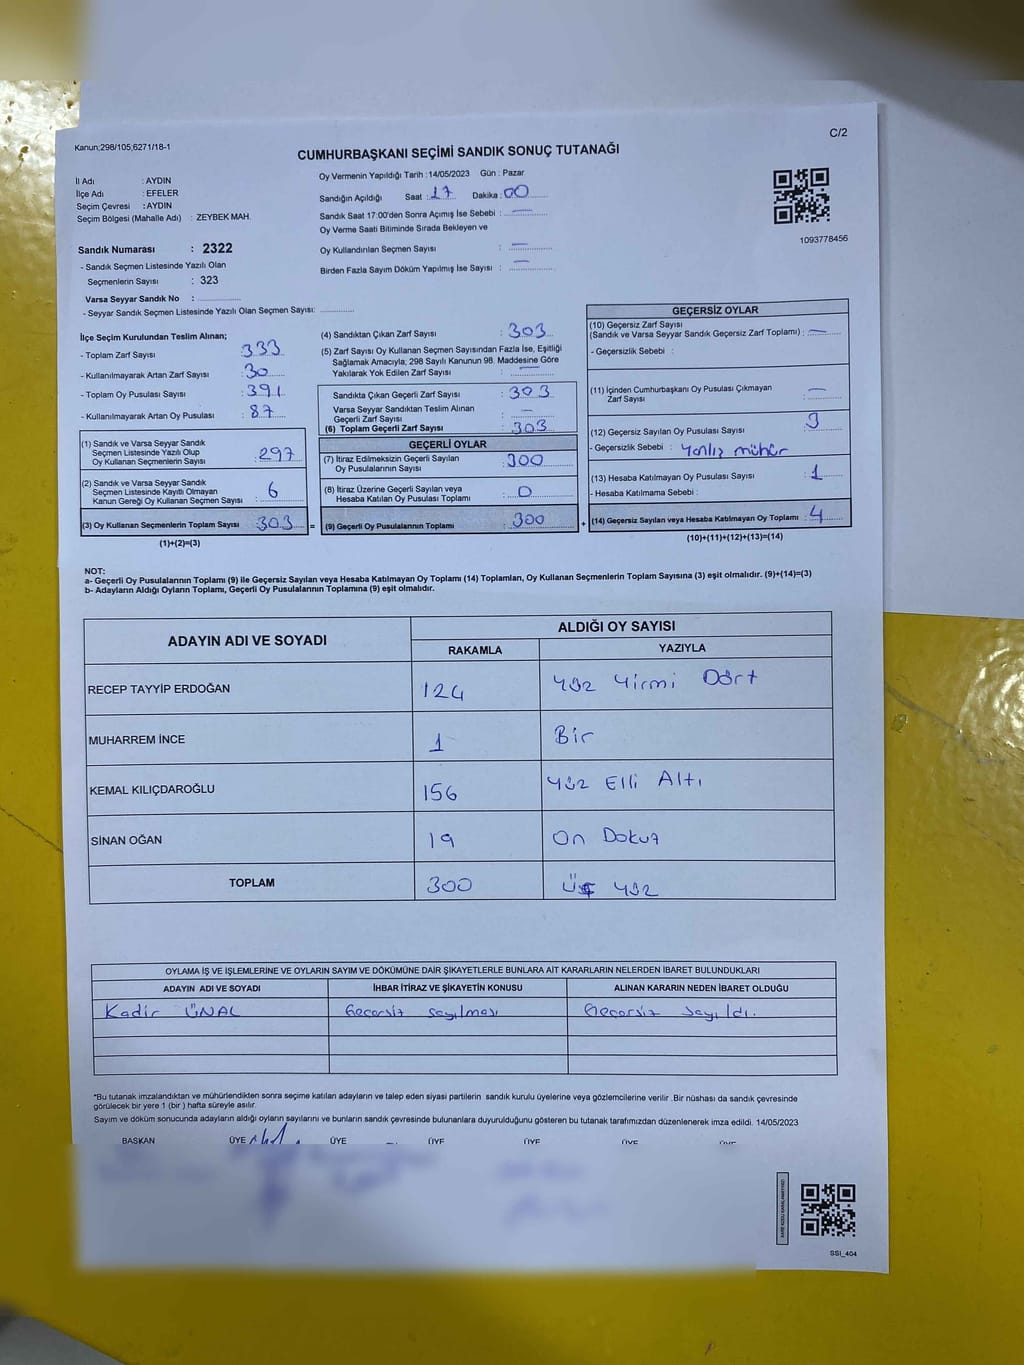 Kanun;298/105;6271/18-1
C/2
CUMHURBAŞKANI SEÇİMİ SANDIK SONUÇ TUTANAĞI
İl Adı : AYDIN
İlçe Adı : EFELER
Seçim Çevresi : AYDIN
Seçim Bölgesi (Mahalle Adı) : ZEYBEK MAH.
Sandık Numarası : 2322
- Sandık Seçmen Listesinde Yazılı Olan
Seçmenlerin Sayısı : 323
Varsa Seyyar Sandık No :
- Seyyar Sandık Seçmen Listesinde Yazılı Olan Seçmen Sayısı:
Oy Vermenin Yapıldığı Tarih :14/05/2023 Gün : Pazar
Sandığın Açıldığı Saat : 17 Dakika : 00
Sandık Saat 17:00'den Sonra Açımış İse Sebebi : —
Oy Verme Saati Bitiminde Sırada Bekleyen ve
Oy Kullandırılan Seçmen Sayısı : —
Birden Fazla Sayım Döküm Yapılmış İse Sayısı : —
1093778456
İlçe Seçim Kurulundan Teslim Alınan;
- Toplam Zarf Sayısı : 333
- Kullanılmayarak Artan Zarf Sayısı : 30
- Toplam Oy Pusulası Sayısı : 391
- Kullanılmayarak Artan Oy Pusulası : 87
(1) Sandık ve Varsa Seyyar Sandık
Seçmen Listesinde Yazılı Olup
Oy Kullanan Seçmenlerin Sayısı : 297
(2) Sandık ve Varsa Seyyar Sandık
Seçmen Listesinde Kayıtlı Olmayan
Kanun Gereği Oy Kullanan Seçmen Sayısı : 6
(3) Oy Kullanan Seçmenlerin Toplam Sayısı : 303 =
(1)+(2)=(3)
(4) Sandıktan Çıkan Zarf Sayısı : 303
(5) Zarf Sayısı Oy Kullanan Seçmen Sayısından Fazla İse, Eşitliği
Sağlamak Amacıyla, 298 Sayılı Kanunun 98. Maddesine Göre
Yakılarak Yok Edilen Zarf Sayısı : —
Sandıkta Çıkan Geçerli Zarf Sayısı : 303
Varsa Seyyar Sandıktan Teslim Alınan
Geçerli Zarf Sayısı : —
(6) Toplam Geçerli Zarf Sayısı : 303
GEÇERLİ OYLAR
(7) İtiraz Edilmeksizin Geçerli Sayılan
Oy Pusulalarının Sayısı : 300
(8) İtiraz Üzerine Geçerli Sayılan veya
Hesaba Katılan Oy Pusulası Toplamı : 0
(9) Geçerli Oy Pusulalarının Toplamı : 300 +
GEÇERSİZ OYLAR
(10) Geçersiz Zarf Sayısı
(Sandık ve Varsa Seyyar Sandık Geçersiz Zarf Toplamı) : —
- Geçersizlik Sebebi :
(11) İçinden Cumhurbaşkanı Oy Pusulası Çıkmayan
Zarf Sayısı : —
(12) Geçersiz Sayılan Oy Pusulası Sayısı : 3
- Geçersizlik Sebebi : Yanlız mühür
(13) Hesaba Katılmayan Oy Pusulası Sayısı : 1
- Hesaba Katılmama Sebebi :
(14) Geçersiz Sayılan veya Hesaba Katılmayan Oy Toplamı : 4
(10)+(11)+(12)+(13)=(14)
NOT:
a- Geçerli Oy Pusulalarının Toplamı (9) ile Geçersiz Sayılan veya Hesaba Katılmayan Oy Toplamı (14) Toplamları, Oy Kullanan Seçmenlerin Toplam Sayısına (3) eşit olmalıdır. (9)+(14)=(3)
b- Adayların Aldığı Oyların Toplamı, Geçerli Oy Pusulalarının Toplamına (9) eşit olmalıdır.
ADAYIN ADI VE SOYADI ALDIĞI OY SAYISI
RAKAMLA YAZIYLA
RECEP TAYYİP ERDOĞAN 124 Yüz Yirmi Dört
MUHARREM İNCE 1 Bir
KEMAL KILIÇDAROĞLU 156 Yüz Elli Altı
SİNAN OĞAN 19 On Dokuz
TOPLAM 300 Üç Yüz
OYLAMA İŞ VE İŞLEMLERİNE VE OYLARIN SAYIM VE DÖKÜMÜNE DAİR ŞİKAYETLERLE BUNLARA AİT KARARLARIN NELERDEN İBARET BULUNDUKLARI
ADAYIN ADI VE SOYADI İHBAR İTİRAZ VE ŞİKAYETİN KONUSU ALINAN KARARIN NEDEN İBARET OLDUĞU
Kadir ÜNAL Geçersiz sayılması Geçersiz sayıldı.
*Bu tutanak imzalandıktan ve mühürlendikten sonra seçime katılan adayların ve talep eden siyasi partilerin sandık kurulu üyelerine veya gözlemcilerine verilir .Bir nüshası da sandık çevresinde
görülecek bir yere 1 (bir ) hafta süreyle asılır.
Sayım ve döküm sonucunda adayların aldığı oyların sayılarını ve bunların sandık çevresinde bulunanlara duyurulduğunu gösteren bu tutanak tarafımızdan düzenlenerek imza edildi. 14/05/2023
BAŞKAN ÜYE ÜYE ÜYE ÜYE ÜYE ÜYE
SSI_404